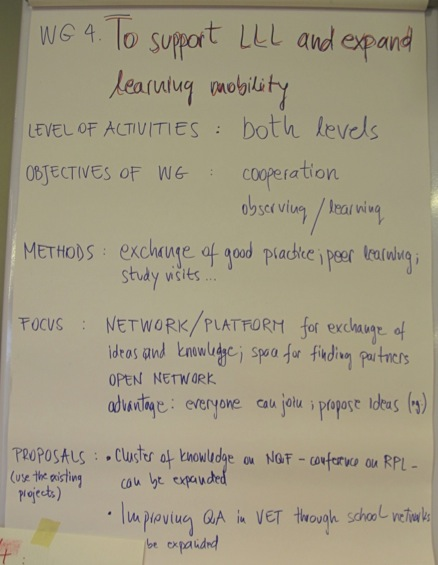 WG 4. To support LLL and expand
learning mobility
LEVEL OF ACTIVITIES : both levels
OBJECTIVES OF WG : cooperation
observing / learning
METHODS : exchange of good practice; peer learning;
study visits...
FOCUS : NETWORK/PLATFORM for exchange of
ideas and knowledge; space for finding partners
OPEN NETWORK
advantage: everyone can join; propose ideas
PROPOSALS : • Cluster of knowledge on NQF - conference on RPL -
(use the existing can be expanded
projects)
• Improving QA in VET through school networks
be expanded